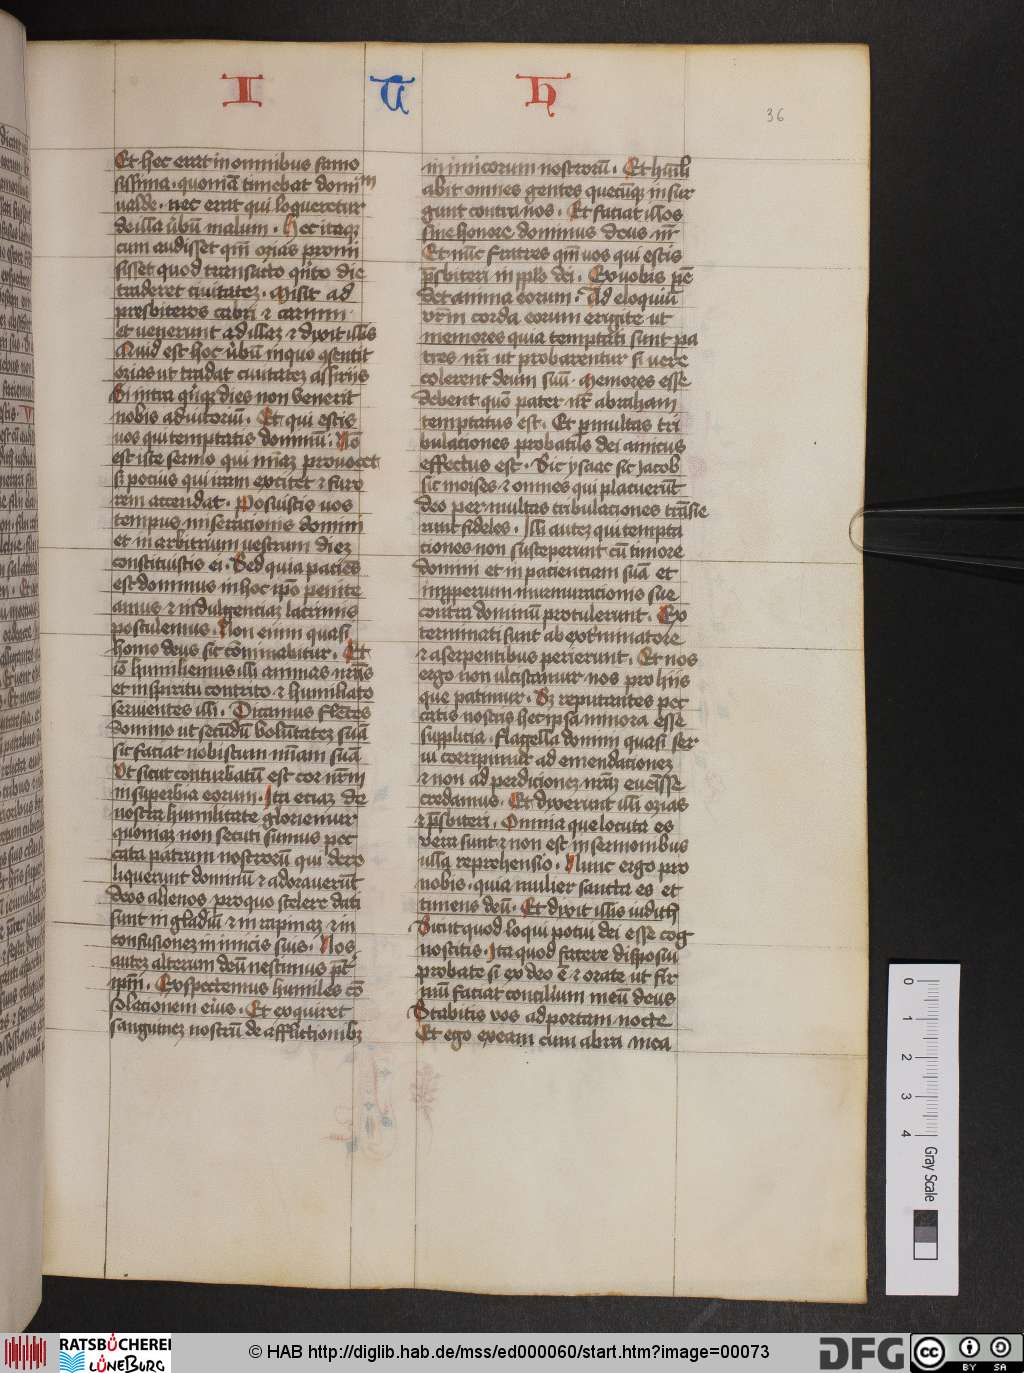 I U H
36
Et hec erat in omnibus famo
sissima · quoniā timebat domin̄
valde · nec erat qui loqueretur
de illa ūbū malum · Hec itaqz
cum audisset qm̄ ozias promi
sisset quod transacto qīto die
traderet civitatez · Misit ad
presbiteros cabri ⁊ carmin
et venerunt ad illaz ⁊ dixit illis
Quid est hoc ūbū in quo ɔsentit
ozias ut tradat civitatez assiriis
Si intra qīqz dies non venerit
nobis adiutoriū · Et qui estis
vos qui temptatis dominū · Nō
est iste sermo qui mīaz provocet
sed pocius qui iram excitet ⁊ furo
rem accendat · Posuistis vos
tempus miserationis domini
et in arbitrium vestrum diez
constituistis ei · Sed quia paciēs
est dominus in hoc ip̄o penite
amus ⁊ indulgenciaz lacrimis
postulemus · Non enim quasi
homo deus sic cōminabitur · Et
iō humiliemus illi animas nr̄as
et in spiritu contrito ⁊ humiliato
servientes illi · Dicamus flētes
domino ut secūdū volūtatez suā
sic faciat nobiscum mīam suā
Ut sicut conturbatū est cor nr̄m
in superbia eorum · Ita etiaz de
nostra humilitate gloriemur
quoniaz non secuti sumus pec
cata patrum nostrorū qui dere
liquerunt dominū ⁊ adoraverūt
deos alienos pro quo scelere dati
sunt in gladiū ⁊ in rapinaz ⁊ in
confusionez inimicis suis · Nos
autez alterum deū nescimus p̄t̄
ip̄m · Exspectemus humiles cō
solationem eius · Et exquiret
sanguinez nostrū de afflictionibz
inimicorum nostrorū · Et hūili
abit omnes gentes quecūqz insur
gunt contra nos · Et faciat illos
sine honore dominus deus nr̄
Et nūc fratres qm̄ vos qui estis
p̄sbiteri in pp̄lo dei · Ex vobis pē
det anima eorum · Ad eloquiū
vr̄m corda eorum erigite ut
memores quia temptati sunt pa
tres nr̄i ut probarentur si vere
colerent deum suū · Memores esse
debent quō pater nr̄ abraham
temptatus est · Et p multas tri
bulationes probatus dei amicus
effectus est · Sic ysaac sic Jacob
sic moises ⁊ omnes qui placuerūt
deo per multas tribulationes trāsie
runt fideles · Illi autez qui tempta
ciones non susceperunt cū timore
domini et in pacientiam suā et
inpperium murmurationis sue
contra dominū protulerunt · Ex
terminati sunt ab ext̄minatore
⁊ a serpentibus perierunt · Et nos
ergo non ulciscamur nos pro hiis
que patimur · Sz reputantes pec
catis nostris hec ipsa minora esse
supplicia · flagella domini quasi ser
vi corripimur ad emendationez
⁊ non ad perdicionez nr̄aȝ evēisse
credamus · Et dixerunt illi ozias
⁊ p̄sbiteri · Omnia que locuta es
vera sunt ⁊ non est in sermonibus
ulla reprehensio · Nunc ergo pro
nobis · quia mulier sancta es et
timens deū · Et dixit illis iudith
Sicut quod loqui potui dei esse cog
noscitis · Ita quod facere disposui
probate si ex deo ē ⁊ orate ut fir
mū faciat concilium meū deus
Stabitis vos ad portam nocte
Et ego exeam cum abra mea
0
1
2
3
4
Gray Scale
RATSBÜCHEREI
LÜNEBURG
© HAB http://diglib.hab.de/mss/ed000060/start.htm?image=00073
DFG
cc
BY SA